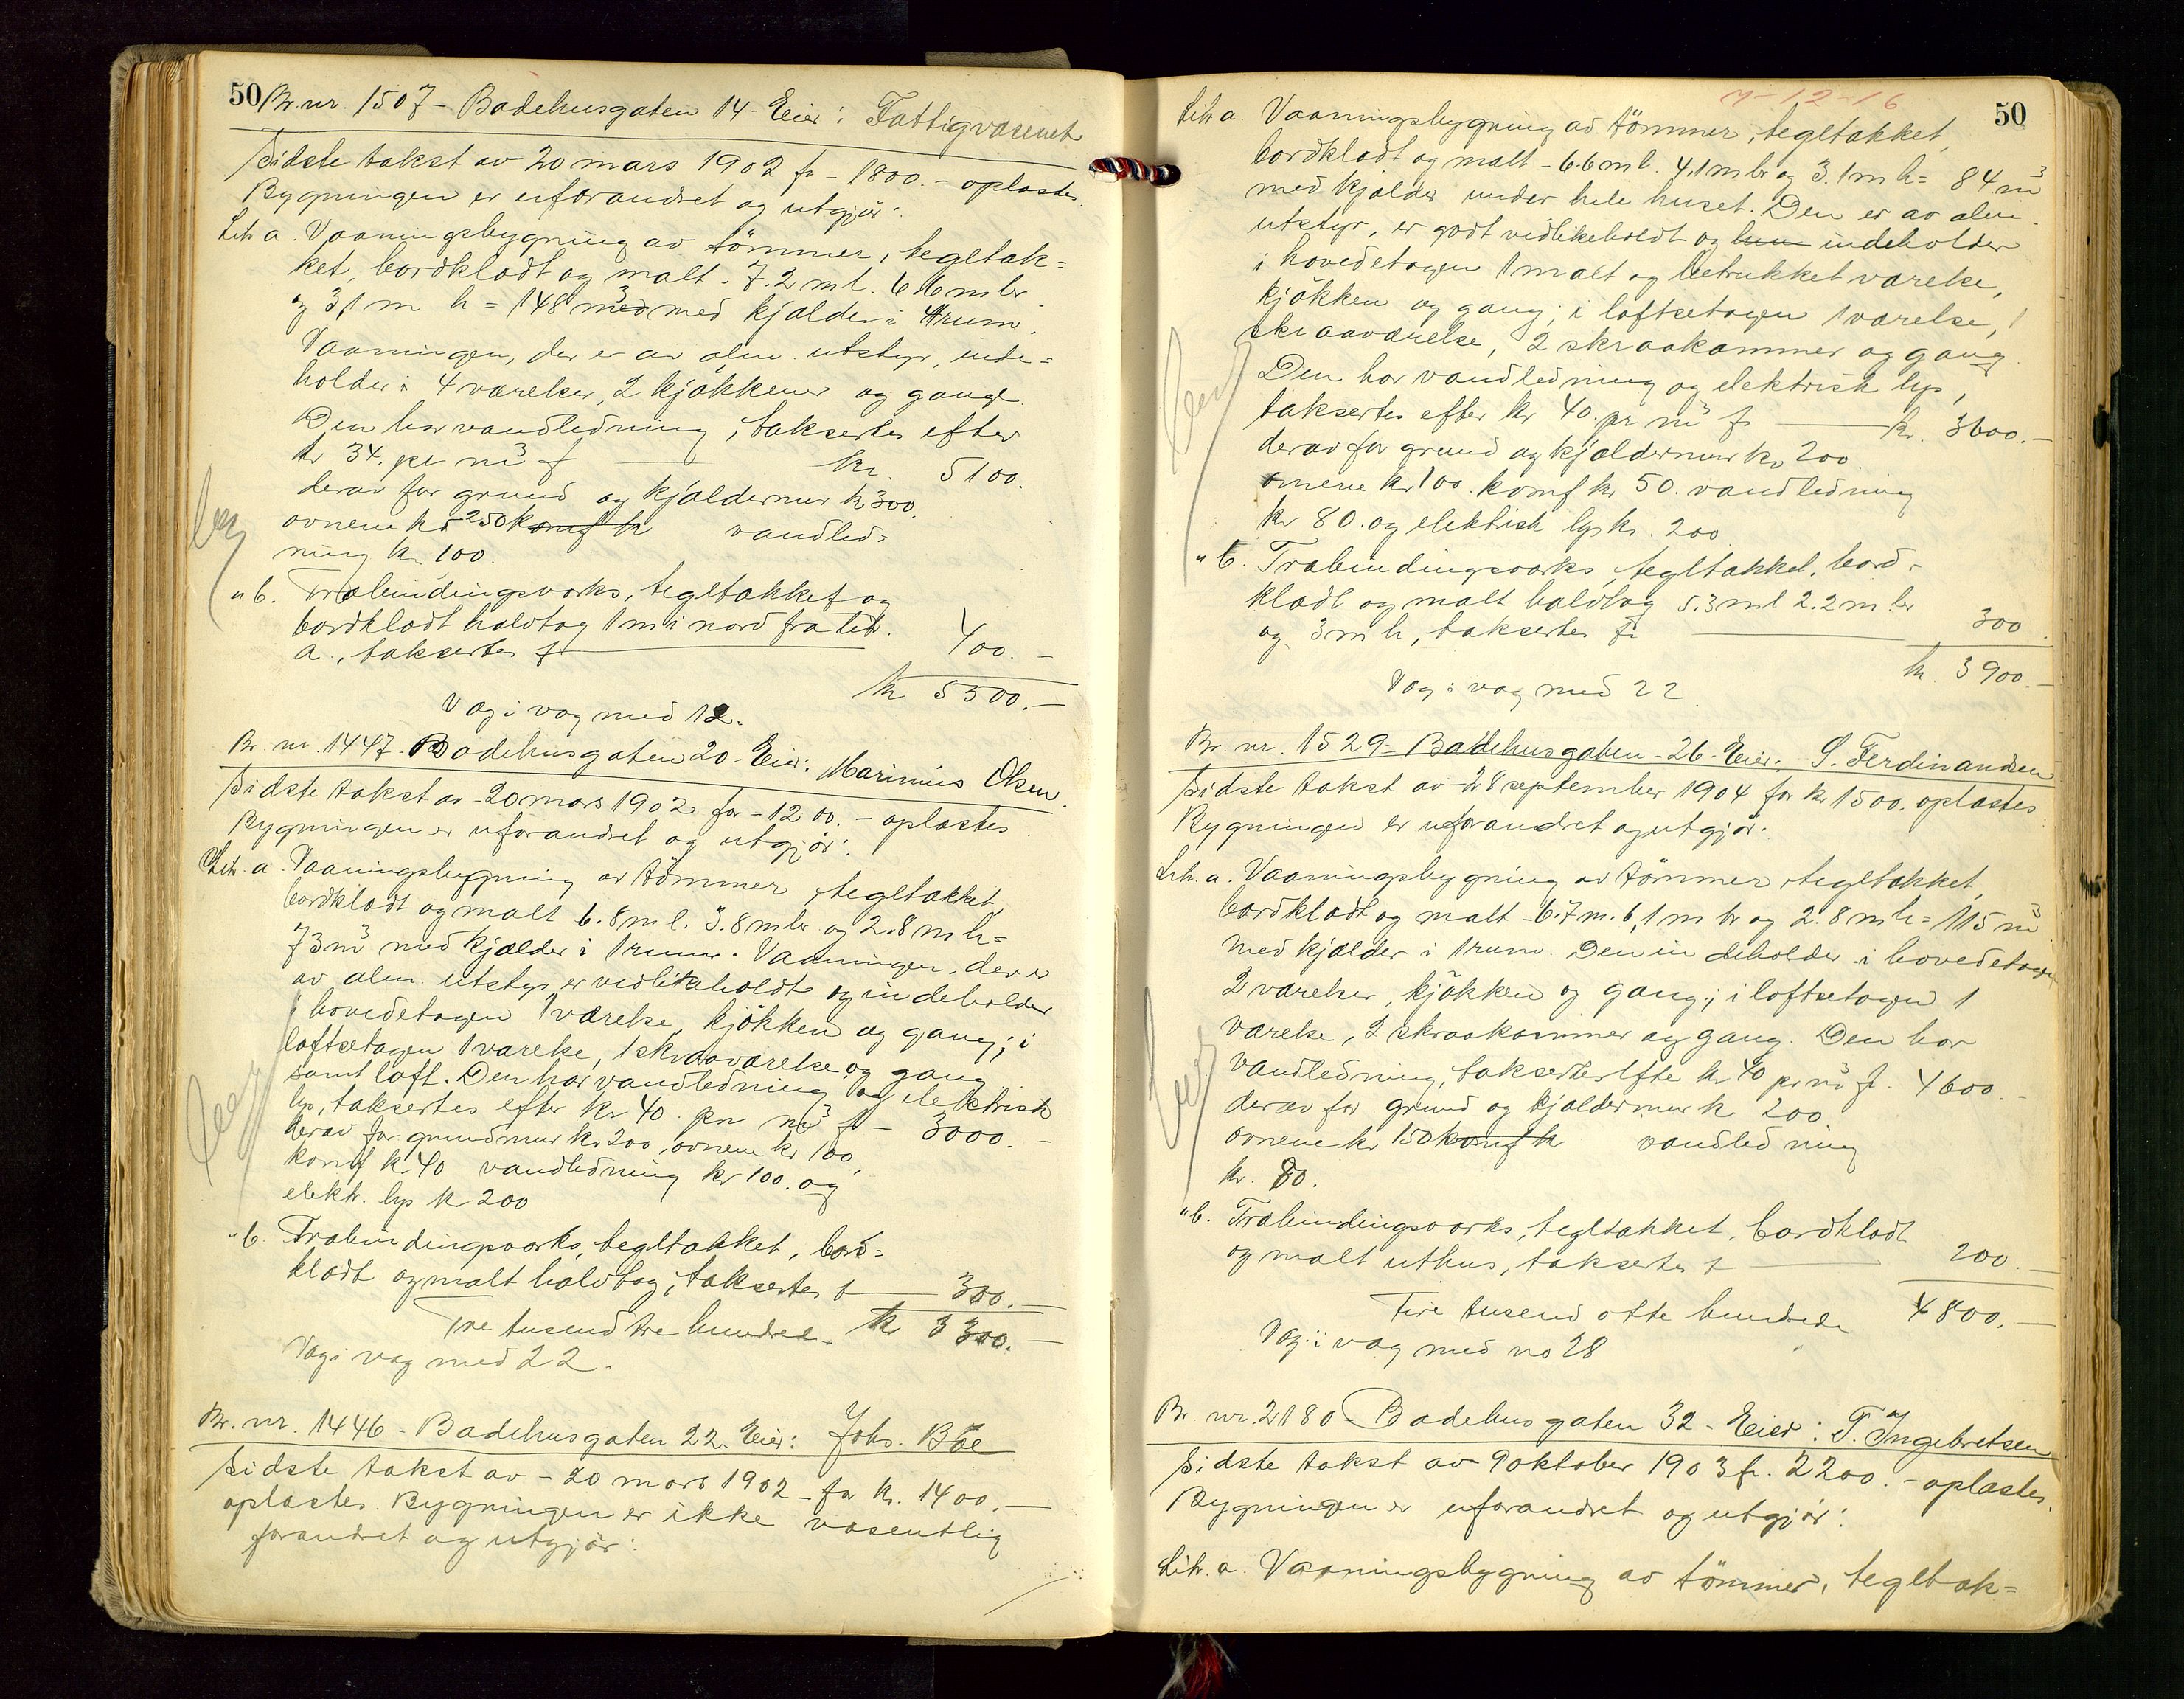 50 Br. nr. 1507 - Badehusgaten 14 - Eier: Fattigvæsenet
Sidste takst av 20 mars 1902 fr - 1800. - oplæstes.
Bygningen er uforandret og utgjör:
Lit. a. Vaaningsbygning av tömmer, tegltæk=
ket, bordklædt og malt - 7.2 m l. 6.6 m br
og 3,1 m h = 148 m³ med kjælder i 4 rum.
Vaaningen, der er av alm. utstyr, inde=
holder i 4 værelser, 2 kjökkener og gange.
Den har vandledning, taksertes efter
kr 34. pr m³ f kr. 5100.
derav for grund og kjældermur kr 300.
ovnene kr 250 komf kr vandled=
ning kr 100.
" b. Træbindingsværks, tegltækket og
bordklædt halvtag 1 m i nord fra Lit.
a., taksertes f 400. -
kr 5500. -
Væg i væg med 12.
Br. nr. 1447. Badehusgaten 20 - Eier: Marinius Olsen.
Sidste takst av - 20 mars 1902 for - 1200. - oplæstes.
Bygningen er uforandret og utgjör:
Lit. a. Vaaningsbygning av tömmer, tegltækket,
bordklædt og malt 6.8 m l. 3.8 m br og 2.8 m h =
73 m³ med kjælder i 1 rum. Vaaningen, der er
av alm. utstyr, er vedlikeholdt og indeholder
i hovedetagen 1 værelse, kjökken og gang; i
loftsetagen 1 værelse, 1 skraaværelse og gang
samt loft. Den har vandledning og elektrisk
lys, taksertes efter kr 40. pr m³ f - 3000. -
derav for grundmur kr 200, ovnene kr 100,
komf kr 40 vandledning kr 100. og
elektr. lys kr 200
" b. Træbindingsværks, tegltækket, bord=
klædt og malt halvtag, taksertes f 300. -
Tre tusend tre hundrede kr 3300. -
Væg i væg med 22.
Br. nr. 1446 - Badehusgaten 22. Eier: Johs. Böe
Sidste takst av - 20 mars 1902 - for kr. 1400. -
oplæstes. Bygningen er ikke væsentlig
forandret og utgjör:
7-12-16
50
Lit. a. Vaaningsbygning av tömmer, tegltækket,
bordklædt og malt - 6.6 m l. 4.1 m br og 3.1 m h = 84 m³
med kjælder under hele huset. Den er av alm.
utstyr, er godt vedlikeholdt og indeholder
i hovedetagen 1 malt og betrukket værelse,
kjökken og gang; i loftsetagen 1 værelse, 1
skraaværelse, 2 skraakammer og gang.
Den har vandledning og elektrisk lys,
taksertes efter kr 40. pr m³ fr kr. 3600. -
derav for grund og kjældermur kr 200.
ovnene kr 100. komf kr 50. vandledning
kr 80. og elektrisk lys kr. 200
" b. Træbindingsværks, tegltækket, bord-
klædt og malt halvtag 5.3 m l 2.2 m br
og 3 m h, taksertes fr 300.
kr. 3900. -
Væg i væg med 22
Br. nr. 1529 - Badehusgaten - 26 - Eier: S. Ferdinandsen
Sidste takst av - 28 september 1904 for kr 1500. oplæstes
Bygningen er uforandret og utgjör:
Lit. a. Vaaningsbygning av tömmer, tegltækket,
bordklædt og malt - 6.7 m. 6,1 m br og 2.8 m h = 115 m³
med kjælder i 1 rum. Den indeholder i hovedetagen
2 værelser, kjökken og gang; i loftsetagen 1
værelse, 2 skraakammer og gang. Den har
vandledning, taksertes efter kr 40 pr m³ f. 4600. -
derav for grund og kjældermur kr 200
ovnene kr 150 komf kr vandledning
kr. 80.
" b. Træbindingsværks, tegltækket, bordklædt
og malt uthus, taksertes f 200. -
Fire tusend otte hundrede 4800. -
Væg i væg med no 28
Br. nr. 2180 - Badehusgaten 32 - Eier: T. Ingebretsen
Sidste takst av 9 oktober 1903 fr. 2200. - oplæstes.
Bygningen er uforandret og utgjör:
Lit. a. Vaaningsbygning av tömmer, tegltæk=